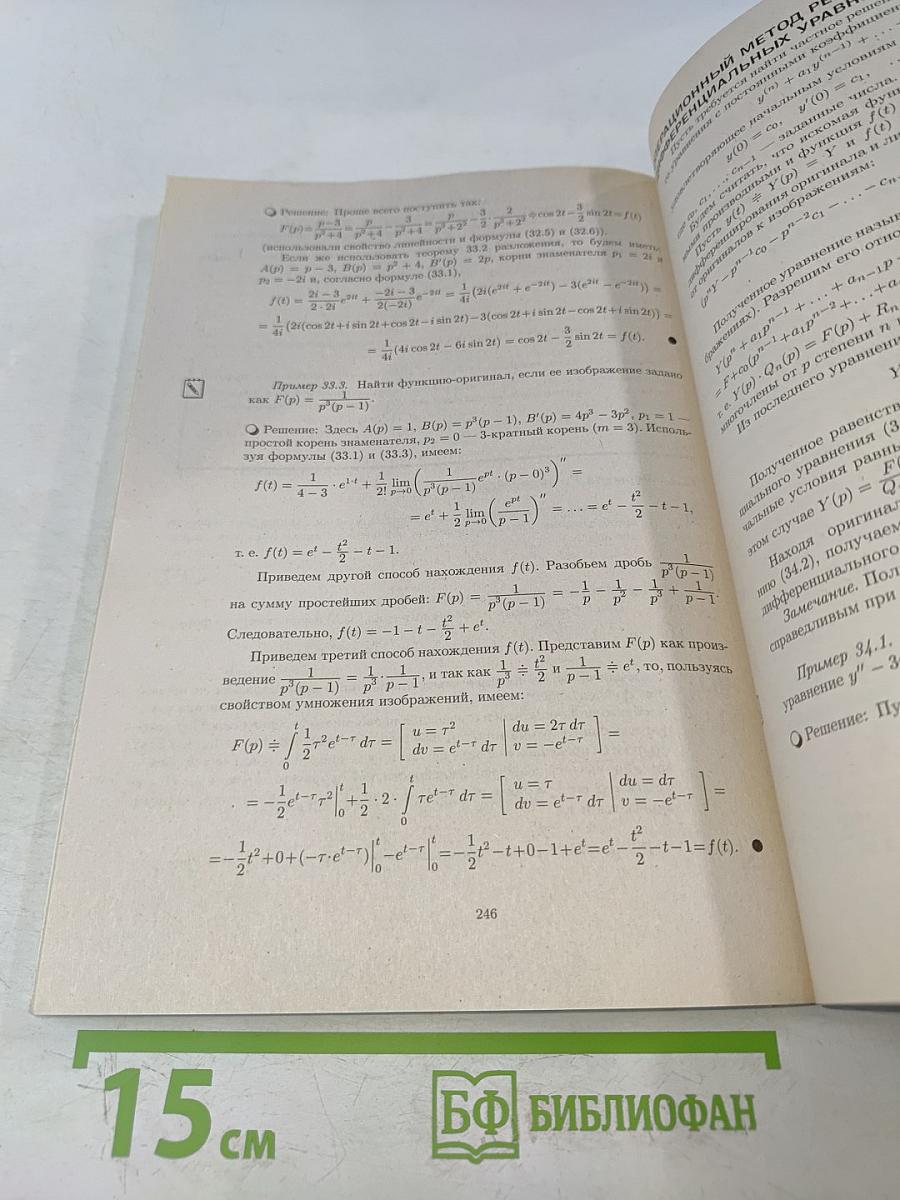 Решение: Проще всего поступить так:
F(p) = \frac{p-3}{p^2+4} = \frac{p}{p^2+4} - \frac{3}{p^2+4} = \frac{p}{p^2+2^2} - \frac{3}{2} \cdot \frac{2}{p^2+2^2} ≑ cos 2t - \frac{3}{2} sin 2t = f(t)
(использовали свойство линейности и формулы (32.5) и (32.6)).
Если же использовать теорему 33.2 разложения, то будем иметь:
A(p) = p − 3, B(p) = p² + 4, B′(p) = 2p, корни знаменателя p₁ = 2i и
p₂ = −2i и, согласно формуле (33.1),
f(t) = \frac{2i-3}{2·2i} e^{2it} + \frac{-2i-3}{2(-2i)} e^{-2it} = \frac{1}{4i}(2i(e^{2it} + e^{-2it}) − 3(e^{2it} − e^{-2it})) =
= \frac{1}{4i}(2i(cos 2t+i sin 2t+cos 2t−i sin 2t)−3(cos 2t+i sin 2t−cos 2t+i sin 2t)) =
= \frac{1}{4i}(4i cos 2t − 6i sin 2t) = cos 2t − \frac{3}{2} sin 2t = f(t).
Пример 33.3. Найти функцию-оригинал, если ее изображение задано
как F(p) = \frac{1}{p^3(p-1)}.
Решение: Здесь A(p) = 1, B(p) = p³(p − 1), B′(p) = 4p³ − 3p², p₁ = 1 —
простой корень знаменателя, p₂ = 0 — 3-кратный корень (m = 3). Исполь-
зуя формулы (33.1) и (33.3), имеем:
f(t) = \frac{1}{4-3} · e^{1·t} + \frac{1}{2!} \lim_{p→0} (\frac{1}{p^3(p-1)} e^{pt} · (p − 0)^3)″ =
= e^t + \frac{1}{2} \lim_{p→0} (\frac{e^{pt}}{p-1})″ = … = e^t − \frac{t^2}{2} − t − 1,
т. е. f(t) = e^t − \frac{t^2}{2} − t − 1.
Приведем другой способ нахождения f(t). Разобьем дробь \frac{1}{p^3(p-1)}
на сумму простейших дробей: F(p) = \frac{1}{p^3(p-1)} = −\frac{1}{p} − \frac{1}{p^2} − \frac{1}{p^3} + \frac{1}{p-1}.
Следовательно, f(t) = −1 − t − \frac{t^2}{2} + e^t.
Приведем третий способ нахождения f(t). Представим F(p) как произ-
ведение \frac{1}{p^3(p-1)} = \frac{1}{p^3} · \frac{1}{p-1}, и так как \frac{1}{p^3} ≑ \frac{t^2}{2} и \frac{1}{p-1} ≑ e^t, то, пользуясь
свойством умножения изображений, имеем:
F(p) ≑ ∫_0^t \frac{1}{2} τ² e^{t−τ} dτ = [ u = τ² | du = 2τ dτ ; dv = e^{t−τ} dτ | v = −e^{t−τ} ] =
= −\frac{1}{2} e^{t−τ} τ² |_0^t + \frac{1}{2} · 2 · ∫_0^t τe^{t−τ} dτ = [ u = τ | du = dτ ; dv = e^{t−τ} dτ | v = −e^{t−τ} ] =
= −\frac{1}{2} t² + 0 + (−τ·e^{t−τ})|_0^t − e^{t−τ}|_0^t = −\frac{1}{2} t² − t + 0 − 1 + e^t = e^t − \frac{t^2}{2} − t − 1 = f(t).
246
МЕТОД
Пусть требуется найти частное
с постоянными
y^{(n)} + a₁y^{(n−1)} + …
начальным условиям
y(0) = c₀, y′(0) = c₁,
c_{n−1} — заданные числа.
Будем считать, что искомая
производными и функция f(t)
Пусть y(t) ≑ Y(p) = Y и f(t)
дифференцирования оригинала и
оригиналов к изображениям:
(p^n Y − p^{n−1}c₀ − p^{n−2}c₁ − … − c
Полученное уравнение
Разрешим его
Y(p^n + a₁p^{n−1} + … + a_{n−1}p
= F+c₀(p^{n−1}+a₁p^{n−2}+…+a
т. е. Y(p) · Q_n(p) = F(p) + R
многочлены от p степени n
Из последнего
Y
Полученное
уравнения (3
условия
этом случае Y(p) =
Находя
(34.2), получаем
дифференциального
Замечание.
справедливым при
Пример 34.1.
уравнение y″ − 3
Решение:
15 см
БФ БИБЛИОФАН